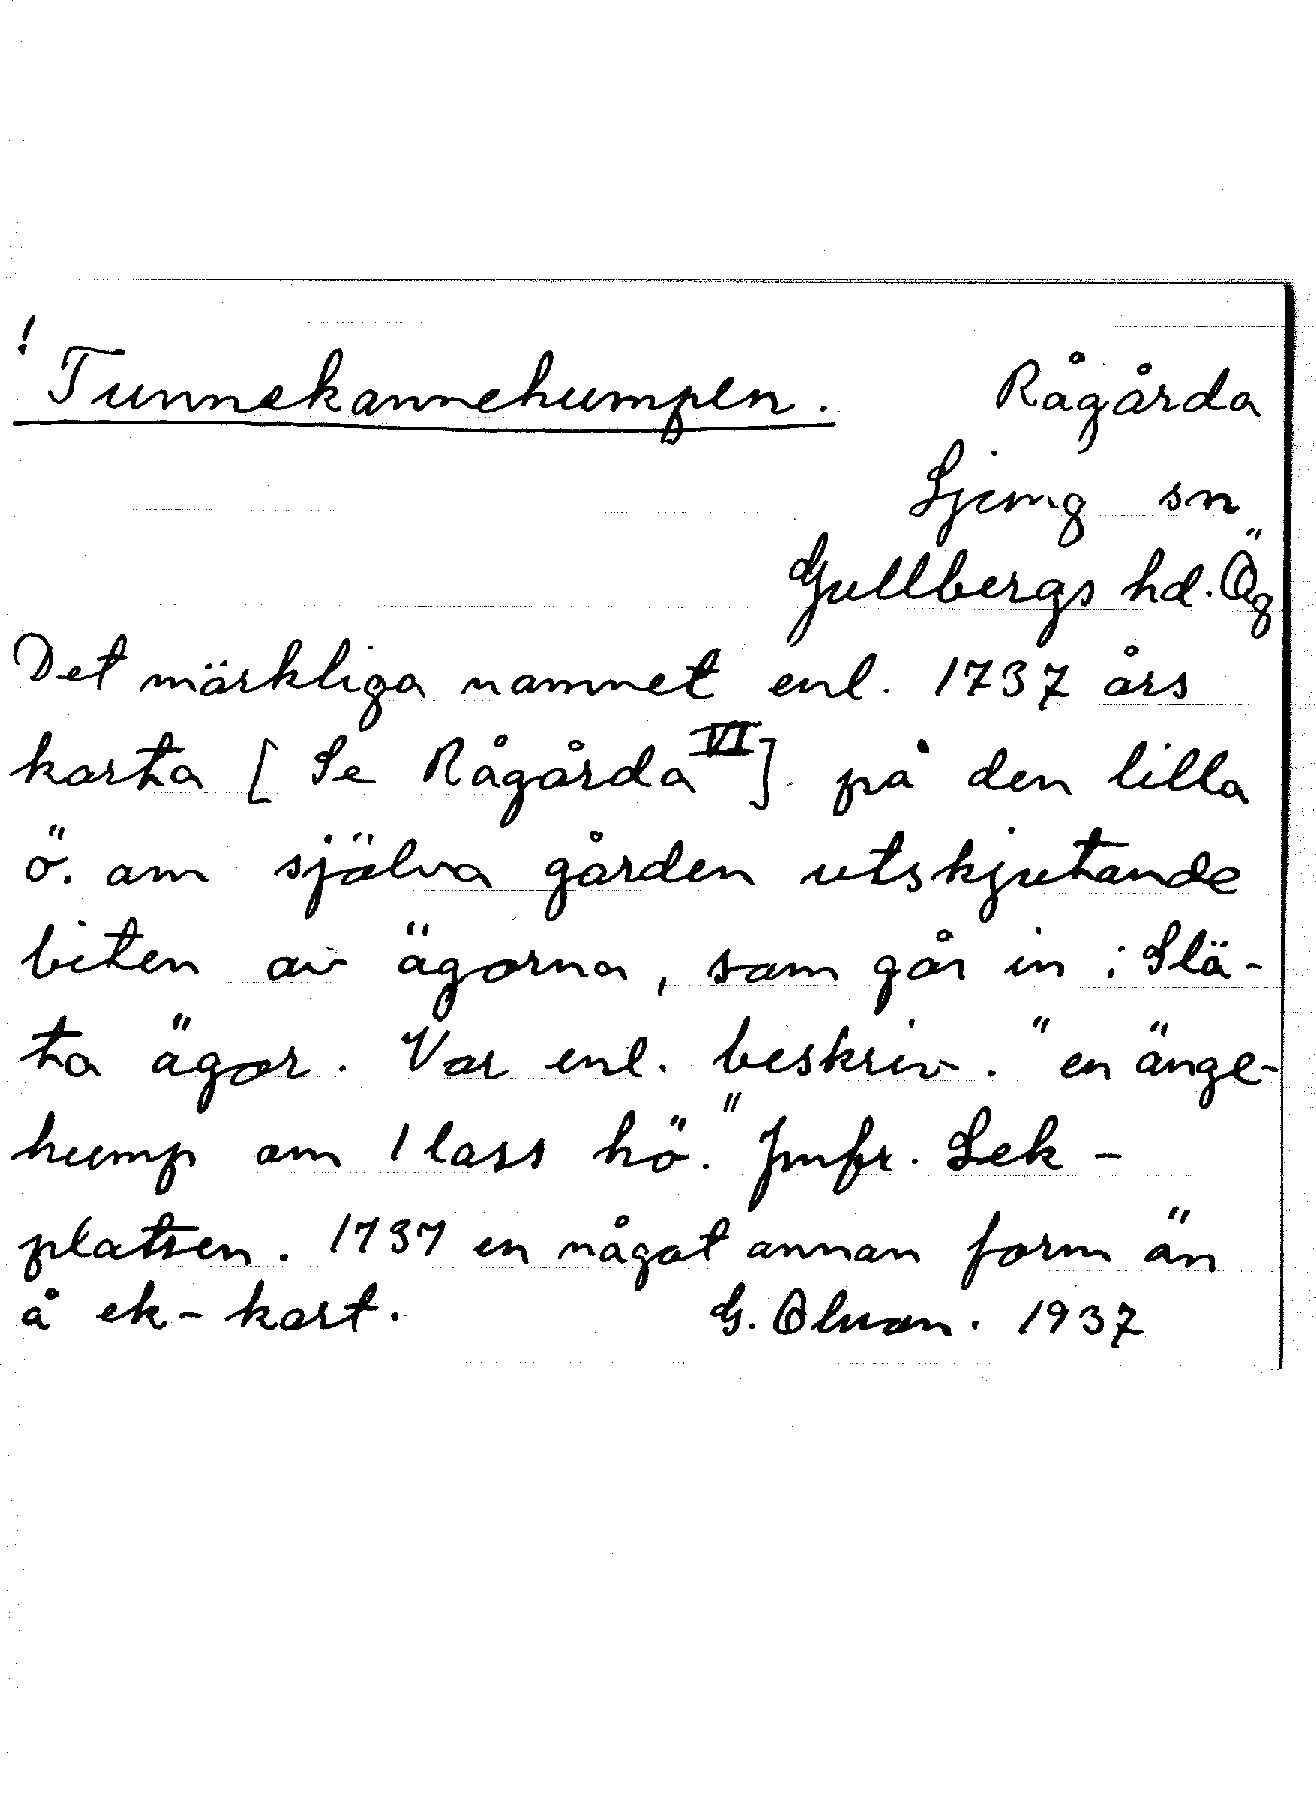 ! Tunnekannehumpen. Rågårda
Ljung sn
Gullbergs hd. Ög
Det märkliga namnet enl. 1737 års
karta [Se Rågårda VI] på den lilla
ö. om själva gården utskjutande
biten av ägorna, som går in i Slä-
ta ägor. Var enl. beskriv. "en änge-
hump om 1 lass hö." Jmfr. Lek-
platsen. 1737 en något annan form än
å ek-kart. G. Olsson. 1937